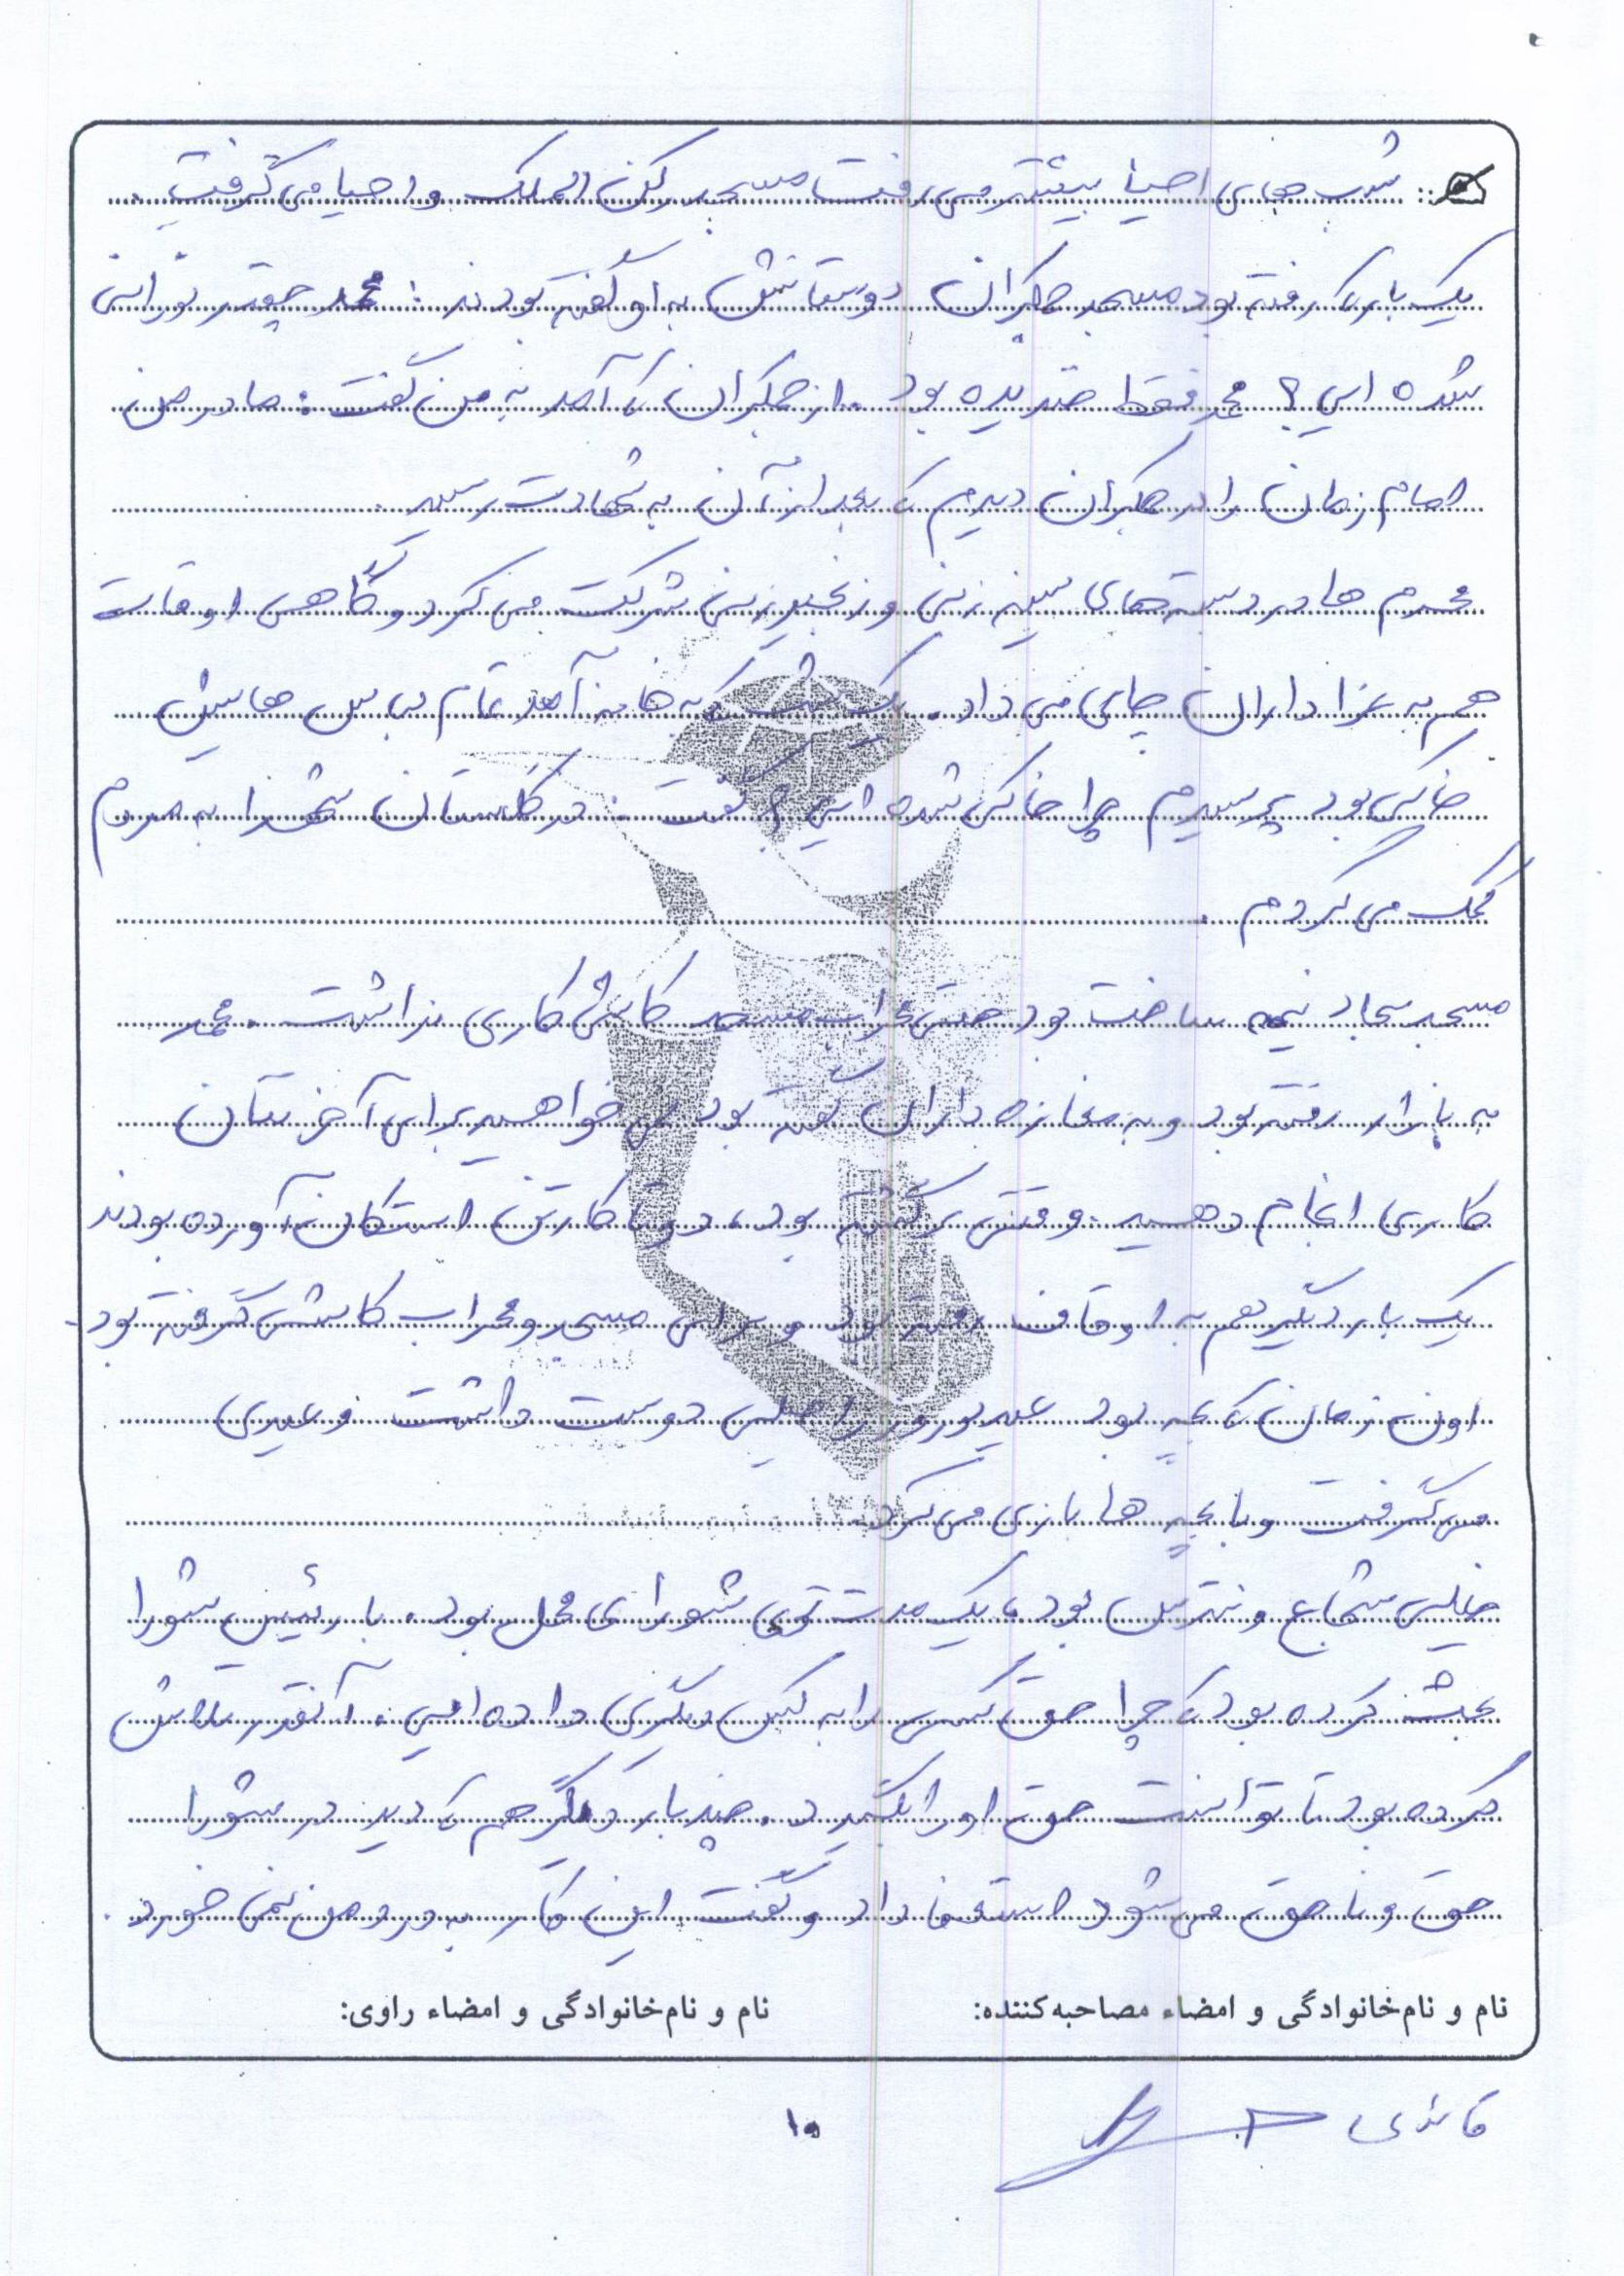 شب های احیا بیشتر می رفت مسجد رکن الملک و احیا می گرفت.
یک بار که رفته بود مسجد جمکران دوستانش به او گفته بودند: محمد چقدر نورانی
شده ای؟ محمد فقط خندیده بود. از جمکران که آمد به من گفت: مادر من
امام زمان را در جمکران دیدم که بعد از آن به شهادت رسید.
محرم ها در دسته های سینه زنی و زنجیرزنی شرکت می کرد و گاهی اوقات
هم به عزاداران چای می داد. یک شب که به خانه آمد تمام لباس هایش
خاکی بود پرسیدم چرا خاکی شده ای؟ گفت: در گلستان شهدا به مردم
کمک می کردم.
مسجد سجاد نیمه ساخت بود حتی محراب مسجد کاشی کاری نداشت. محمد
به بازار رفته بود و به مغازه داران گفته بود می خواهید برای آخرتتان
کاری انجام دهید. وقتی برگشته بود، دو تا کارتن استکان آورده بودند
یک بار دیگر هم به اوقاف رفته بود و برای مسجد و محراب کاشی گرفته بود.
اون زمان که بچه بود عید نوروز را خیلی دوست داشت و عیدی
می گرفت و با بچه ها بازی می کرد.
خیلی شجاع و نترس بود، یک مدت توی شورای محل بود. با رئیس شورا
بحث کرده بود که چرا حق کسی را به کس دیگری داده ای. آنقدر تلاش
کرده بود تا توانست حق او را بگیرد. چند بار دیگر هم که دید در شورا
حق و ناحق می شود استعفا داد و گفت این کار به درد من نمی خورد.
نام و نام خانوادگی و امضاء مصاحبه کننده: نام و نام خانوادگی و امضاء راوی:
قائدی
۱۰